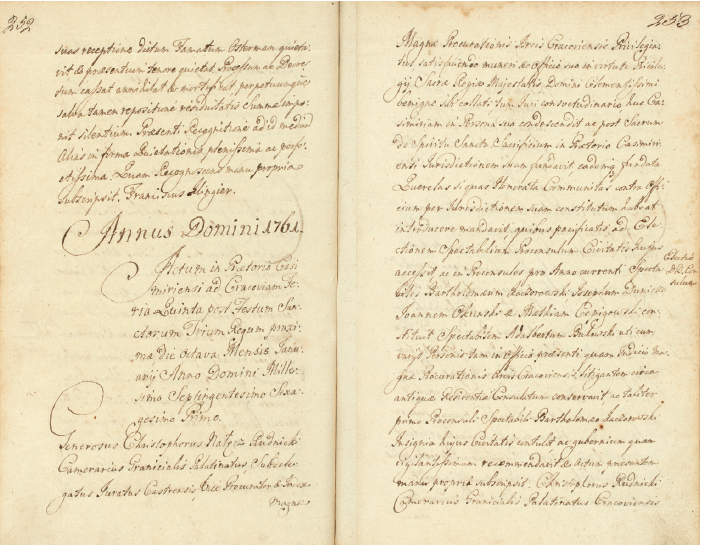 252
suas receptione dictum Famatum Osterman quieta-
vit & præsentium tenore quietat, Processum ac Decre-
tum cassat annihilat & mortificat perpetuumque
salva tamen repositione residuitatis Summæ impo-
nit silentium. Præsenti Recognitione ad id mediante
Alias in forma Quietationis plenissima ac perfe-
ctissima. Quam Recognoscens manu propria
subscripsit. Franciscus Klingier.
Annus Domini 1761.
Actum in Prætorio Casi-
miriensi ad Cracoviam Fe-
ria Quinta post Festum San-
ctorum Trium Regum proxi-
ma die Octava Mensis Janu-
arij Anno Domini Mille-
simo Septingentesimo Sexa-
gesimo Primo.
Generosus Christophorus Rudnicki
Camerarius Granicialis Palatinatus, Subdele-
gatus Juratus Castrensis, Vice Procurator & Judex
Magnæ
253
Magnæ Procurationis Arcis Cracoviensis Privilegia-
tus satisfaciendo muneri & Officio suo in virtute Privile-
gij Sacræ Regiæ Majestatis, Domini Clementissimi
benigne sibi collati Jure Suri consvetudinario huc Ca-
simiriam in Persona sua condescendit ac post Sacrum
de Spiritu Sancto Sacrificium in Prætorio Casimiri-
ensi Jurisdictionem suam fundavit, eademq fundata
Querelas si quas Honorata Communitas contra Offi-
cium per Jurisdictionem suam constitutum habeat
introducere mandavit, quibus pacificatis ad Ele-
ctionem Spectabilium Proconsulum Civitatis hujus
accessit ac in Proconsules pro Anno currenti Specta-
biles Bartholomæum Josephum
Joannem & Mathiam con-
stituit Spectabilem Adalbertum uti cum
varijs Personis tam in Officio præsenti quam Judicio Ma-
gnæ Procurationis Arcis Cracoviensis litigantem circa
antiquæ Residentiæ Consulatum conservavit, ac taliter
primo Proconsuli Spectabili Bartholomæo
Insignia hujus Civitatis contulit ac gubernium quam
vigilantissimum recommendavit & Actum præsentem
manu propria subscripsit. Christophorus Rudnicki
Camerarius Granicialis Palatinatus Cracoviensis
Electio
DD. Con-
sulum